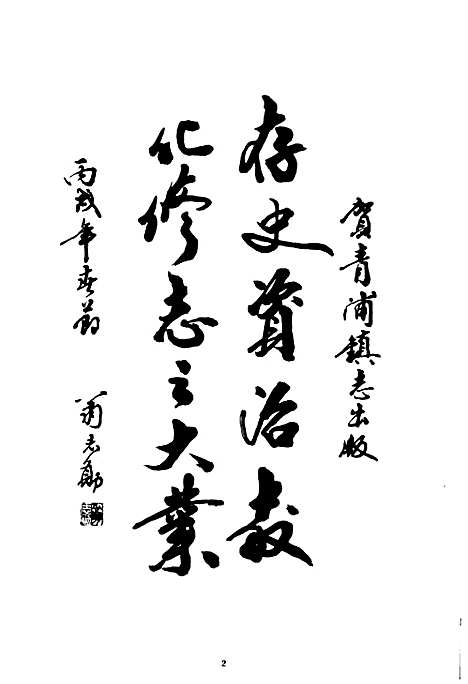 賀青浦鎮志出版
存史資治教
化修志之大業
丙戌年春節
志勛
2